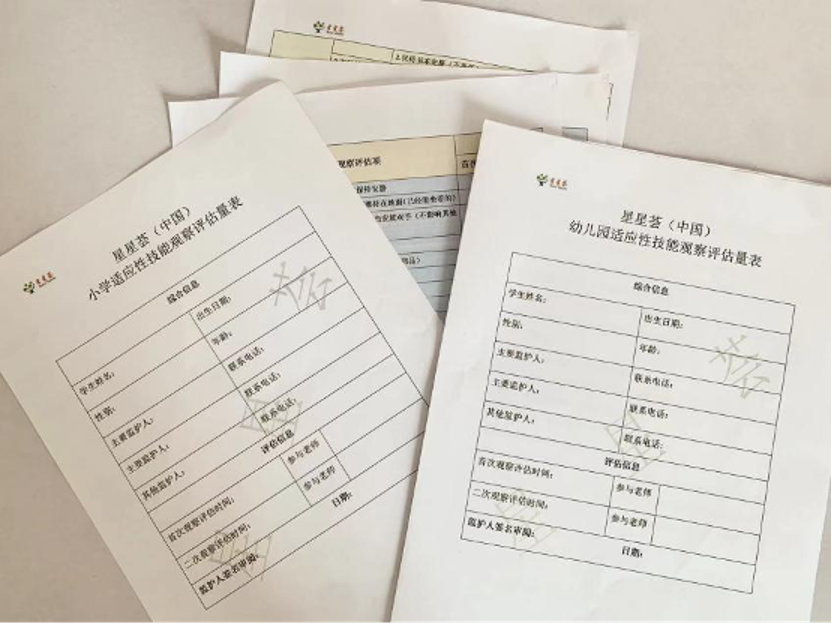 星星荟
2.保持书本安静(不
观察评估项
首次
保持安静
要待在地面(已经能坐着的)
星星荟
星星荟(中国)
小学适应性技能观察评估量表
综合信息
学生姓名:
出生日期:
性别:
年龄:
主要监护人:
联系电话:
主要监护人:
联系电话:
其他监护人:
联系电话:
评估信息
首次观察评估时间:
参与老师
二次观察评估时间:
参与老师
监护人签名审阅:
日期:
星星荟
星星荟(中国)
幼儿园适应性技能观察评估量表
综合信息
学生姓名:
出生日期:
性别:
年龄:
主要监护人:
联系电话:
主要监护人:
联系电话:
其他监护人:
联系电话:
评估信息
首次观察评估时间:
参与老师
二次观察评估时间:
参与老师
监护人签名审阅:
日期: